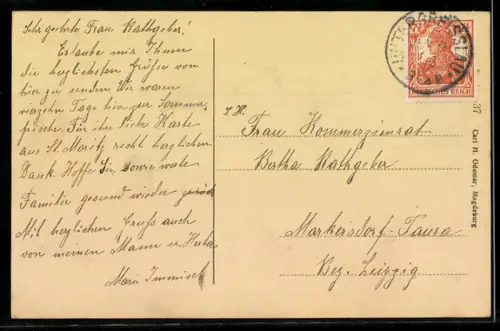 Sehr geehrte Frau Rathgeber!
Erlaube mir Ihnen
die herzlichsten Grüße von
hier zu senden. Wir waren
vierzehn Tage hier zur Sommer-
frische. Für ihre liebe Karte
aus St. Moritz recht herzlichen
Dank. Hoffe Sie, sowie werte
Familie gesund wieder zurück
Mit herzlichen Gruß auch
von meinen Mann u.
Marie
I. H.
Frau Kommerzienrat
Bertha Rathgeber
Markersdorf-Taura
Bez. Leipzig
DEUTSCHES REICH
37
Carl H. Odemar, Magdeburg